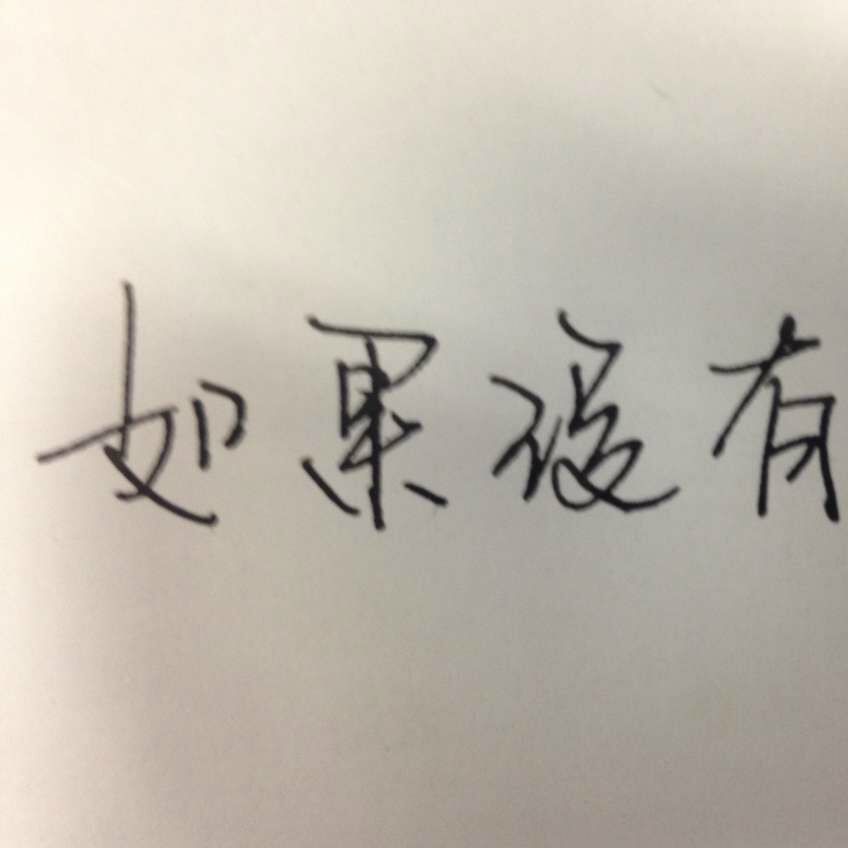 如果没有